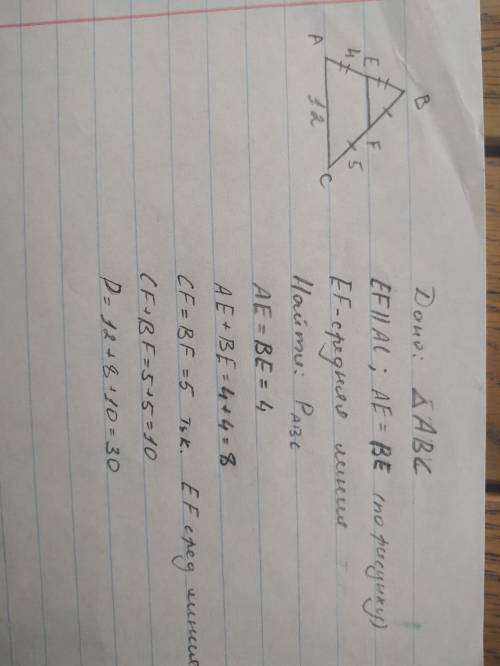 B
E
4
F
5
A
12
C
Дано: △ABC
EF||AC; AE = BE (по рисунку)
EF-средняя линия
Найти: P ABC
AE = BE = 4
AE + BE = 4+4 = 8
CF = BF = 5 т.к. EF сред линия
CF + BF = 5+5 = 10
P = 12 + 8 + 10 = 30